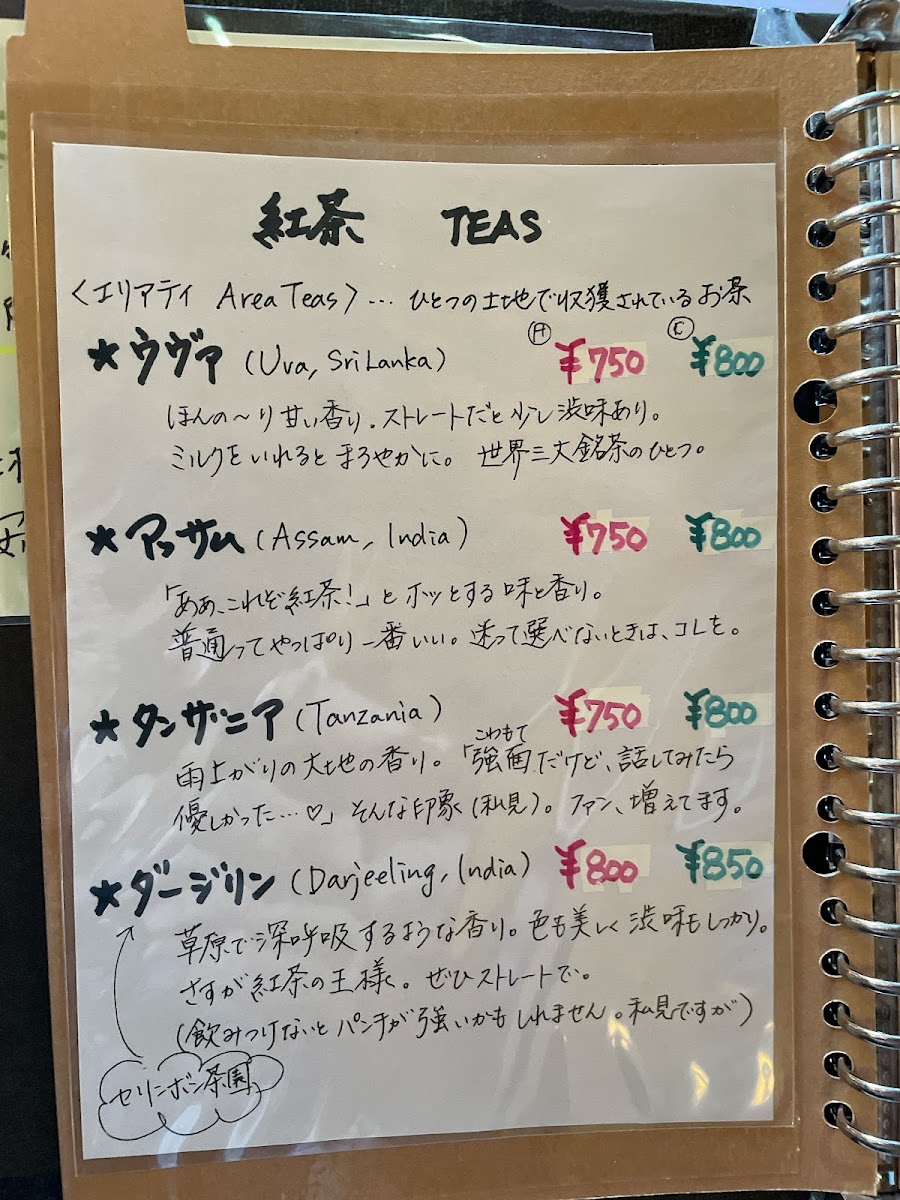 紅茶 TEAS
〈エリアティ Area Teas〉… ひとつの土地で収獲されているお茶
Ⓗ Ⓒ
★ウヴァ (Uva, Sri Lanka) ¥750 ¥800
ほんの〜り甘い香り。ストレートだと少し渋味あり。
ミルクをいれるとまろやかに。世界三大銘茶のひとつ。
★アッサム (Assam, India) ¥750 ¥800
「ああ、これぞ紅茶!」とホッとする味と香り。
普通ってやっぱり一番いい。迷って選べないときは、コレを。
★タンザニア (Tanzania) ¥750 ¥800
雨上がりの大地の香り。「強面だけど、話してみたら
こわもて
優しかった…♡」そんな印象(私見)。ファン、増えてます。
★ダージリン (Darjeeling, India) ¥800 ¥850
草原で深呼吸するような香り。色も美しく渋味もしっかり。
さすが紅茶の王様。ぜひストレートで。
(飲みつけないとパンチが強いかもしれません。私見ですが)
セリンボン茶園